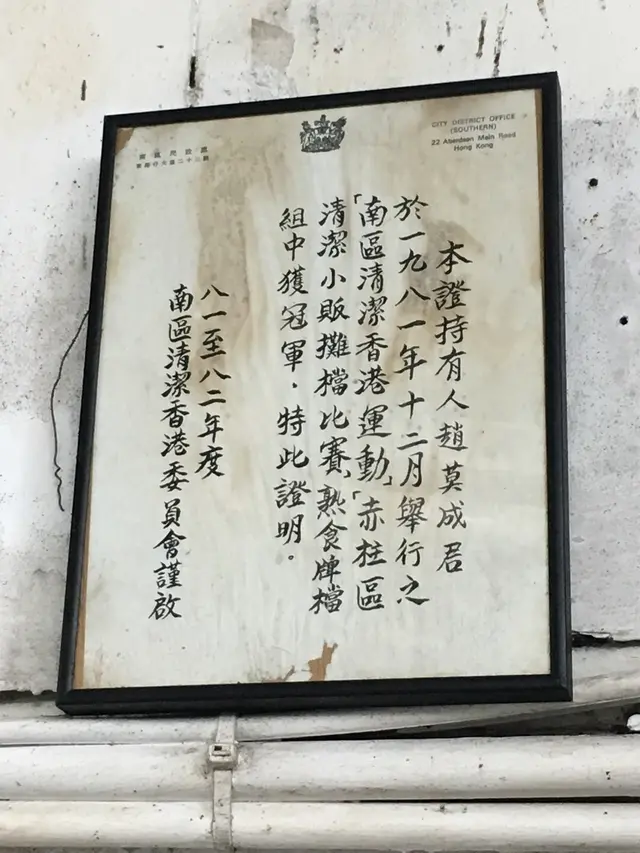 CITY DISTRICT OFFICE
(SOUTHERN)
22 Aberdeen Main Road
Hong Kong
本證持有人趙莫成君
於一九八一年十二月舉行之
「南區清潔香港運動」「赤柱區
清潔小販攤檔比賽」熟食牌檔
組中獲冠軍,特此證明。
八一至八二年度
南區清潔香港委員會謹啟